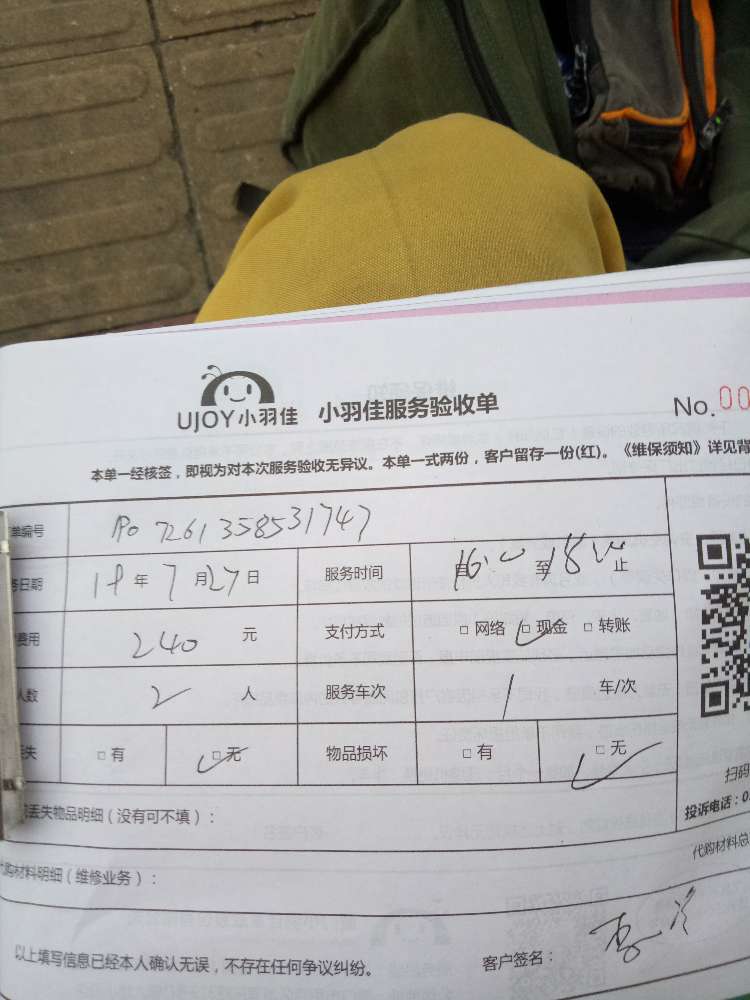 UJOY小羽佳 小羽佳服务验收单
No.00
本单一经核签，即视为对本次服务验收无异议。本单一式两份，客户留存一份(红)。《维保须知》详见背
单编号 7261358531747
务日期 19年7月27日 服务时间 至 止
费用 240 元 支付方式 □网络 □现金 □转账
人数 2 人 服务车次 1 车/次
丢失 □有 □无 物品损坏 □有 □无
丢失物品明细（没有可不填）：
扫码
投诉电话：0
代购材料明细（维修业务）：
代购材料总
以上填写信息已经本人确认无误，不存在任何争议纠纷。 客户签名：